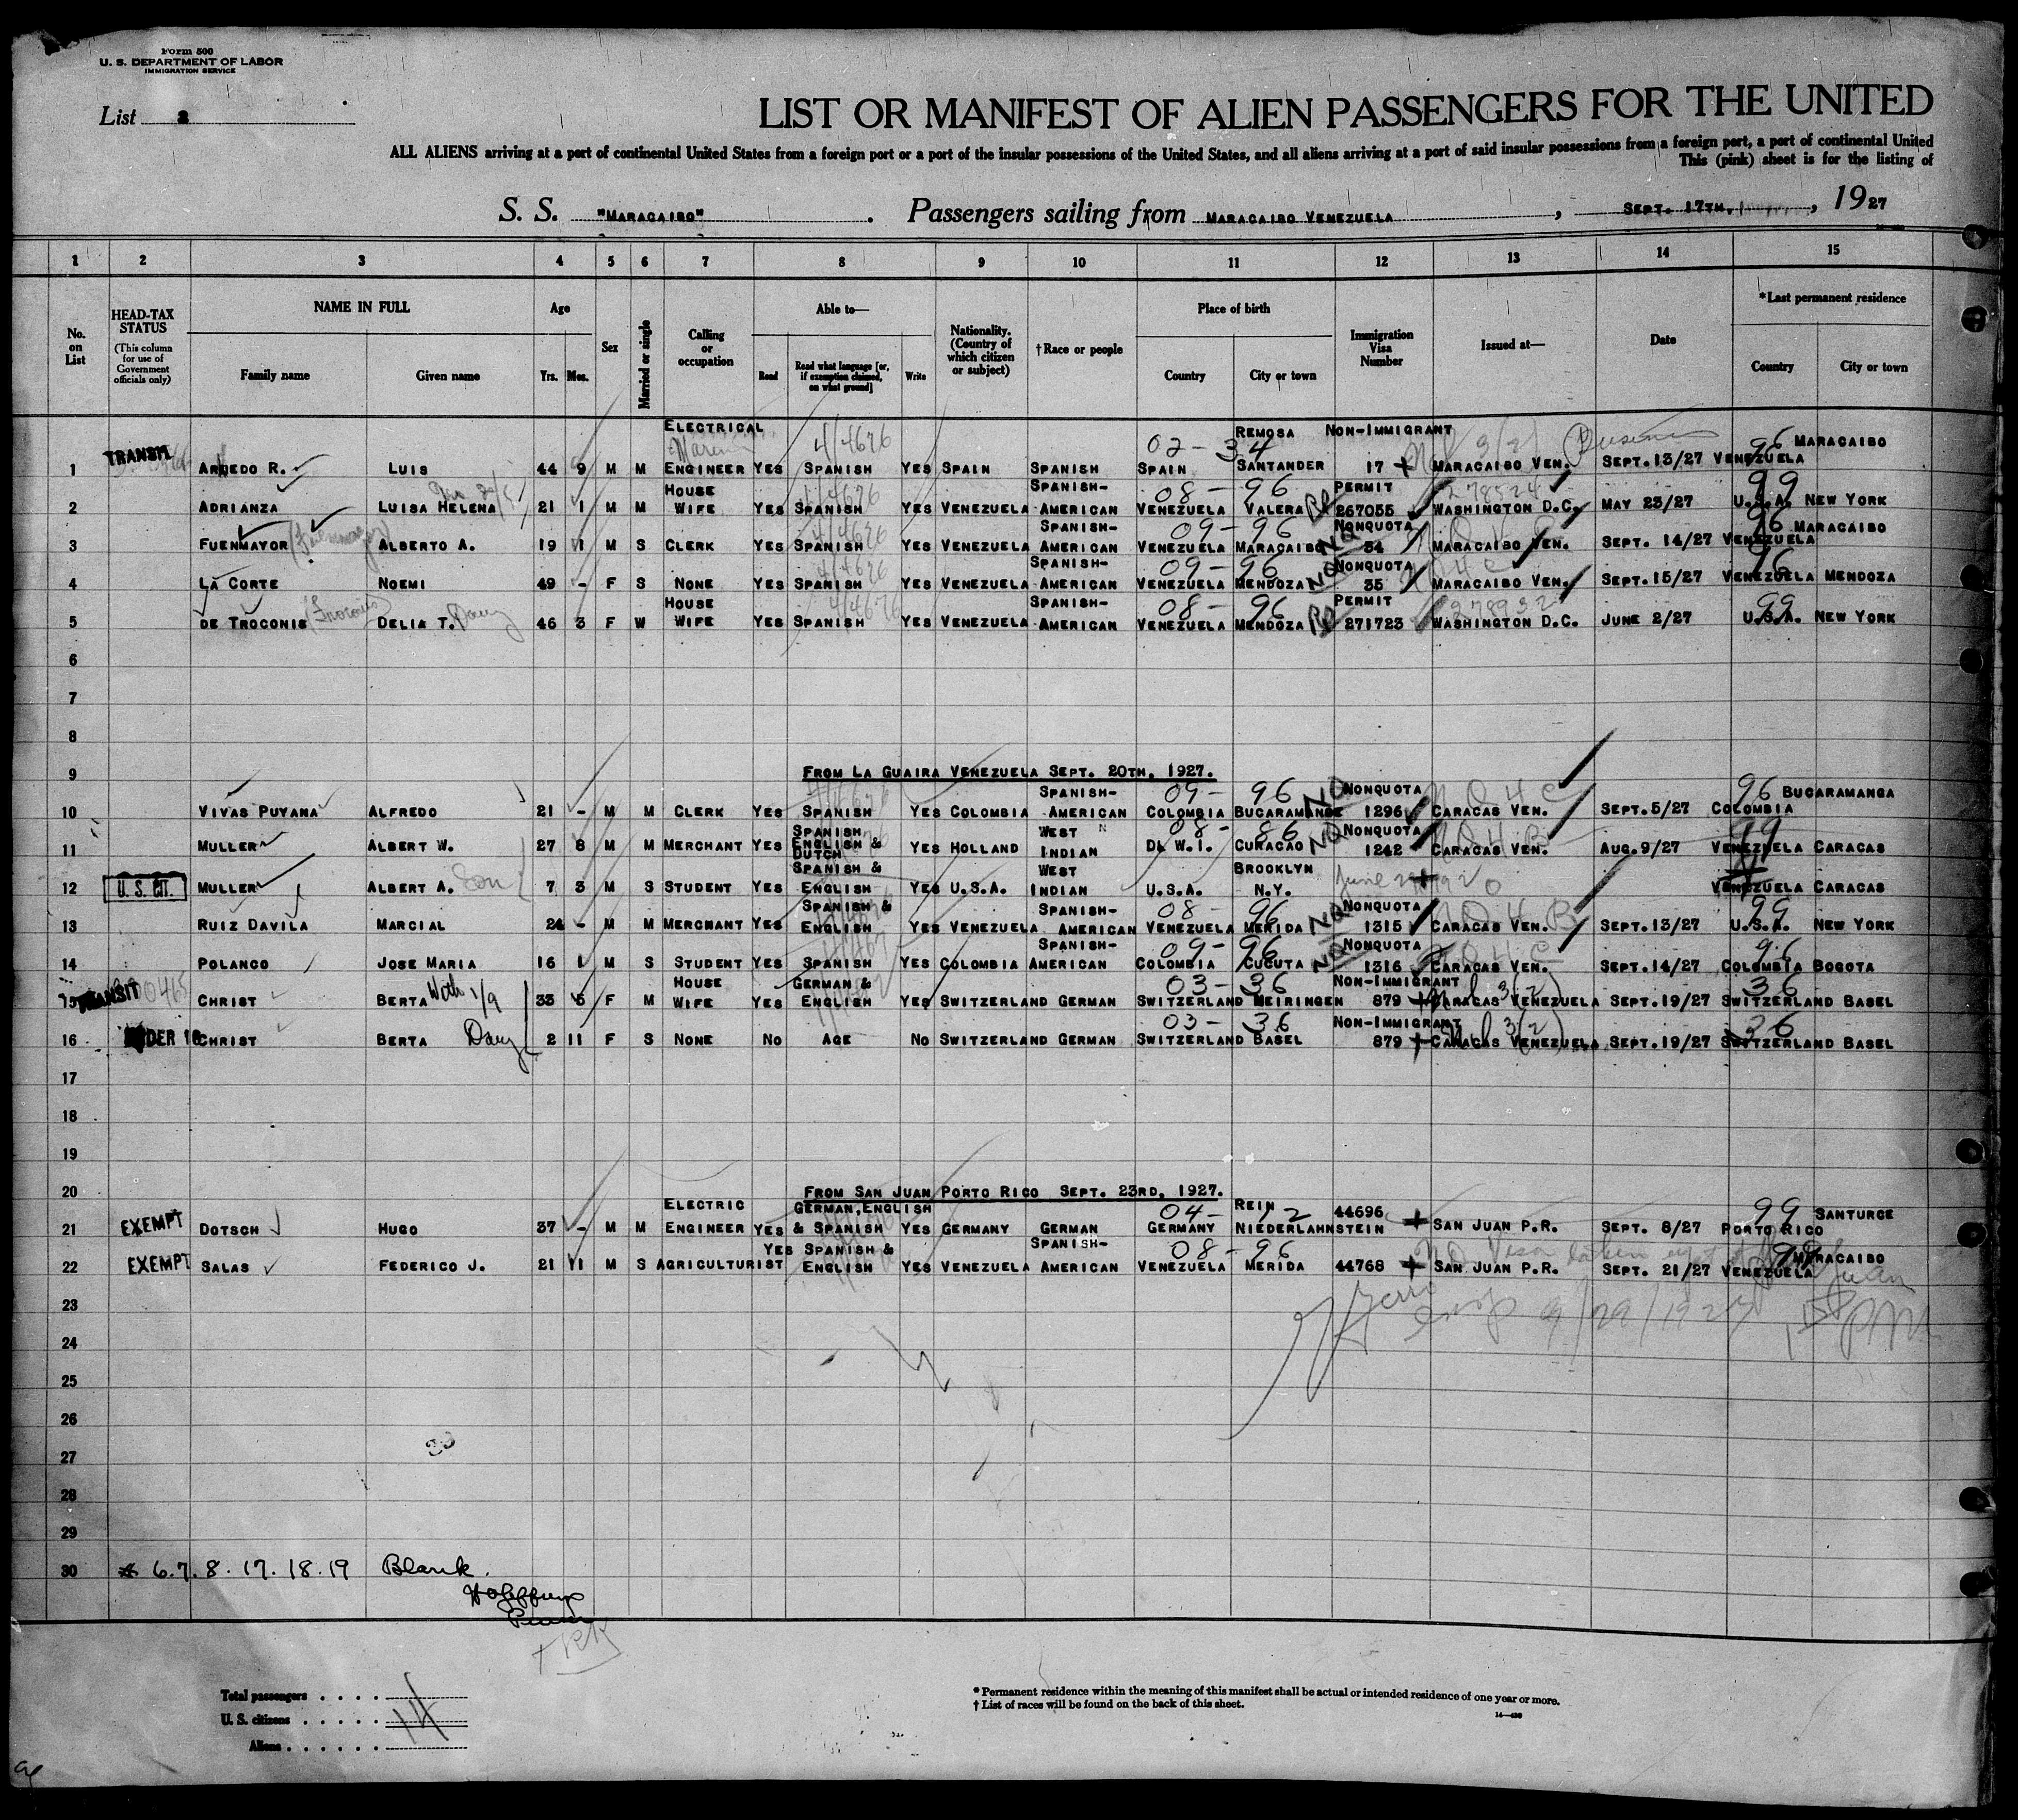 Form 500
U. S. DEPARTMENT OF LABOR
IMMIGRATION SERVICE
List 2
LIST OR MANIFEST OF ALIEN PASSENGERS FOR THE UNITED
ALL ALIENS arriving at a port of continental United States from a foreign port or a port of the insular possessions of the United States, and all aliens arriving at a port of said insular possessions from a foreign port, a port of continental United
This (pink) sheet is for the listing of
S. S. "MARACAIBO". Passengers sailing from MARACAIBO VENEZUELA, SEPT. 17TH, 1927
1 2 3 4 5 6 7 8 9 10 11 12 13 14 15
No. on List
HEAD-TAX STATUS (This column for use of Government officials only)
NAME IN FULL Family name Given name
Age Yrs. Mos.
Sex
Married or single
Calling or occupation
Able to— Read Read what language [or, if exemption claimed, on what ground] Write
Nationality. (Country of which citizen or subject)
†Race or people
Place of birth Country City or town
Immigration Visa Number
Issued at—
Date
*Last permanent residence Country City or town
ELECTRICAL 4/4676 02-34 REMOSA NON-IMMIGRANT 3(2) 96 MARACAIBO
1 TRANSIT R. LUIS 44 9 M M ENGINEER YES SPANISH YES SPAIN SPANISH SPAIN SANTANDER 17 MARACAIBO VEN. SEPT.13/27 VENEZUELA
HOUSE 4/4676 SPANISH- 08-96 PERMIT 278524 99
2 ADRIANZA LUISA HELENA 21 1 M M WIFE YES SPANISH YES VENEZUELA AMERICAN VENEZUELA VALERA 267055 WASHINGTON D.C. MAY 23/27 U.S.A. NEW YORK
4/4676 SPANISH- 09-96 NONQUOTA 96 MARACAIBO
3 FUENMAYOR (Fuenmayor) ALBERTO A. 19 1 M S CLERK YES SPANISH YES VENEZUELA AMERICAN VENEZUELA MARACAIBO NQ 34 MARACAIBO VEN. SEPT. 14/27 VENEZUELA
4/4676 SPANISH- 09-96 NONQUOTA 96
4 LA CORTE NOEMI 49 - F S NONE YES SPANISH YES VENEZUELA AMERICAN VENEZUELA MENDOZA NQ 35 MARACAIBO VEN. SEPT.15/27 VENEZUELA MENDOZA
HOUSE 4/4676 SPANISH- 08-96 PERMIT 278932 99
5 DE TROCONIS (Troconis) DELIA T. 46 3 F W WIFE YES SPANISH YES VENEZUELA AMERICAN VENEZUELA MENDOZA 271723 WASHINGTON D.C. JUNE 2/27 U.S.A. NEW YORK
6
7
8
9 FROM LA GUAIRA VENEZUELA SEPT. 20TH, 1927.
SPANISH- 09-96 NONQUOTA NQ 4 C 96 BUCARAMANGA
10 VIVAS PUYANA ALFREDO 21 - M M CLERK YES SPANISH YES COLOMBIA AMERICAN COLOMBIA BUCARAMANGE NQ 1296 CARACAS VEN. SEPT.5/27 COLOMBIA
SPANISH WEST 08-86 NONQUOTA NQ 4 B 99
11 MULLER ALBERT W. 27 8 M M MERCHANT YES ENGLISH & DUTCH YES HOLLAND INDIAN D. W.I. CURACAO NQ 1242 CARACAS VEN. AUG.9/27 VENEZUELA CARACAS
SPANISH & WEST BROOKLYN
12 U.S. CIT. MULLER ALBERT A. Son 7 3 M S STUDENT YES ENGLISH YES U.S.A. INDIAN U.S.A. N.Y. VENEZUELA CARACAS
SPANISH & SPANISH- 08-96 NONQUOTA NQ 4 B 99
13 RUIZ DAVILA MARCIAL 24 - M M MERCHANT YES ENGLISH YES VENEZUELA AMERICAN VENEZUELA MERIDA NQ 1315 CARACAS VEN. SEPT.13/27 U.S.A. NEW YORK
SPANISH- 09-96 NONQUOTA NQ 4 C 96
14 POLANCO JOSE MARIA 16 1 M S STUDENT YES SPANISH YES COLOMBIA AMERICAN COLOMBIA CUCUTA NQ 1316 CARACAS VEN. SEPT.14/27 COLOMBIA BOGOTA
HOUSE GERMAN & 03-36 NON-IMMIGRANT 3(2) 36
15 TRANSIT CHRIST BERTA 33 5 F M WIFE YES ENGLISH YES SWITZERLAND GERMAN SWITZERLAND MEIRINGEN 879 CARACAS VENEZUELA SEPT.19/27 SWITZERLAND BASEL
03-36 NON-IMMIGRANT 3(2) 36
16 UNDER 16 CHRIST BERTA 2 11 F S NONE NO AGE NO SWITZERLAND GERMAN SWITZERLAND BASEL 879 CARACAS VENEZUELA SEPT.19/27 SWITZERLAND BASEL
17
18
19
20 FROM SAN JUAN PORTO RICO SEPT. 23RD, 1927.
ELECTRIC GERMAN,ENGLISH 04-12 REIN 44696 99 SANTURCE
21 EXEMPT DOTSCH HUGO 37 - M M ENGINEER YES & SPANISH YES GERMANY GERMAN GERMANY NIEDERLAHNSTEIN SAN JUAN P.R. SEPT. 8/27 PORTO RICO
YES SPANISH & SPANISH- 08-96 MARACAIBO
22 EXEMPT SALAS FEDERICO J. 21 1 M S AGRICULTURIST ENGLISH YES VENEZUELA AMERICAN VENEZUELA MERIDA 44768 SAN JUAN P.R. SEPT. 21/27 VENEZUELA
Juan
23 9/29/1927
24
25
26
27
28
29
30 6.7.8.17.18.19 Blank.
Total passengers . . . .
U. S. citizens . . . . . 14
Aliens . . . . . .
* Permanent residence within the meaning of this manifest shall be actual or intended residence of one year or more.
† List of races will be found on the back of this sheet.